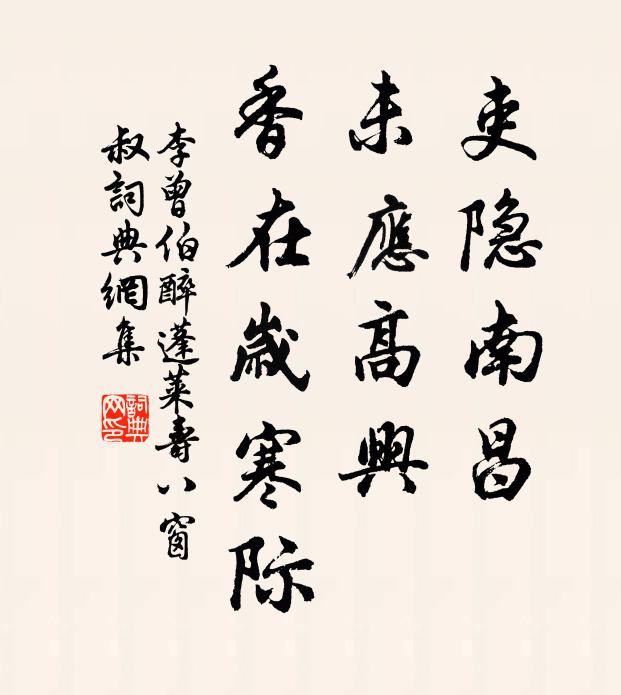 吏隐南昌
未應高興
香在歲寒际
李曾伯醉蓬莱壽八窗
叔詞典網集
詞典网印